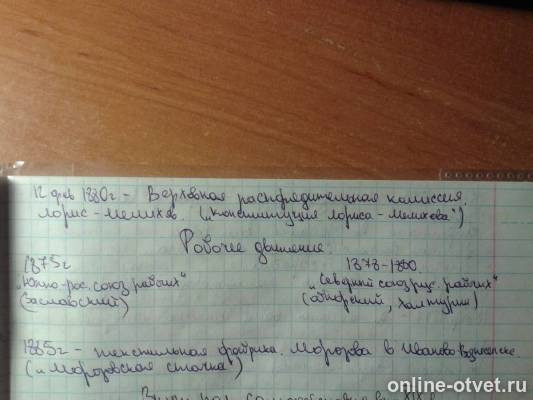 12 фев 1880г - Верховная распредительная комиссия.
Лорис-Меликов. ("конституция Лориса-Меликова")
Рабочее движение:
1875г
1878-1880.
"Южно-рос. союз рабочих"
"Северный союз рус. рабочих"
(Заславский)
(Обнорский, Халтурин)
1885г - текстильная фабрика Морозова в Иваново-Вознесенске.
("Морозовская стачка")
online-otvet.ru